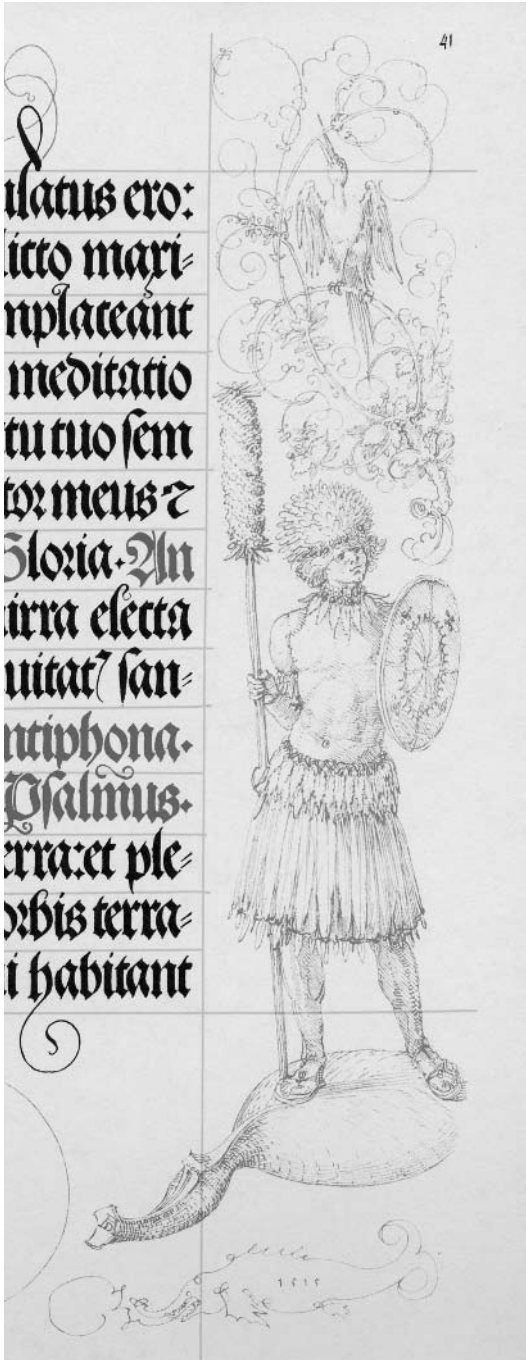 41
ulatus ero:
licto maxi=
mplaceant
meditatio
tu tuo sem
tor meus ⁊
Gloria. An
irra electa
uitat⁊ san=
ntiphona.
Psalmus.
erra: et ple=
orbis terra=
i habitant
1515